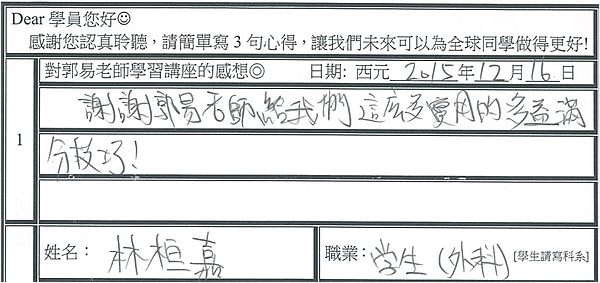 Dear 學員您好☺
感謝您認真聆聽，請簡單寫 3 句心得，讓我們未來可以為全球同學做得更好!
對郭易老師學習講座的感想◎ 日期: 西元 2015 年 12 月 16 日
1
謝謝郭易老師給我們這麼多實用的多益滿
分技巧!
姓名： 林桓嘉
職業： 学生 (外科) [學生請寫科系]